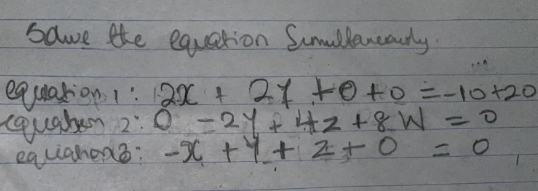 Solve the equation Simultaneously.
equation 1: 2x + 2y + 0 + 0 = -10+20
equation 2: 0 - 2y + 4z + 8W = 0
equation 3: -x + y + z + 0 = 0